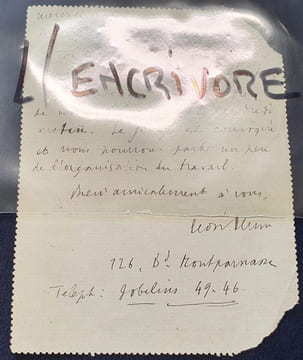 L'ENCRIVORE
de
matin. Le est corrigé,
et nous pourrons parler un peu
de l'organisation du travail.
Bien amicalement à vous,
Léon Blum
126, Bd Montparnasse
Teleph: Gobelins 49-46.